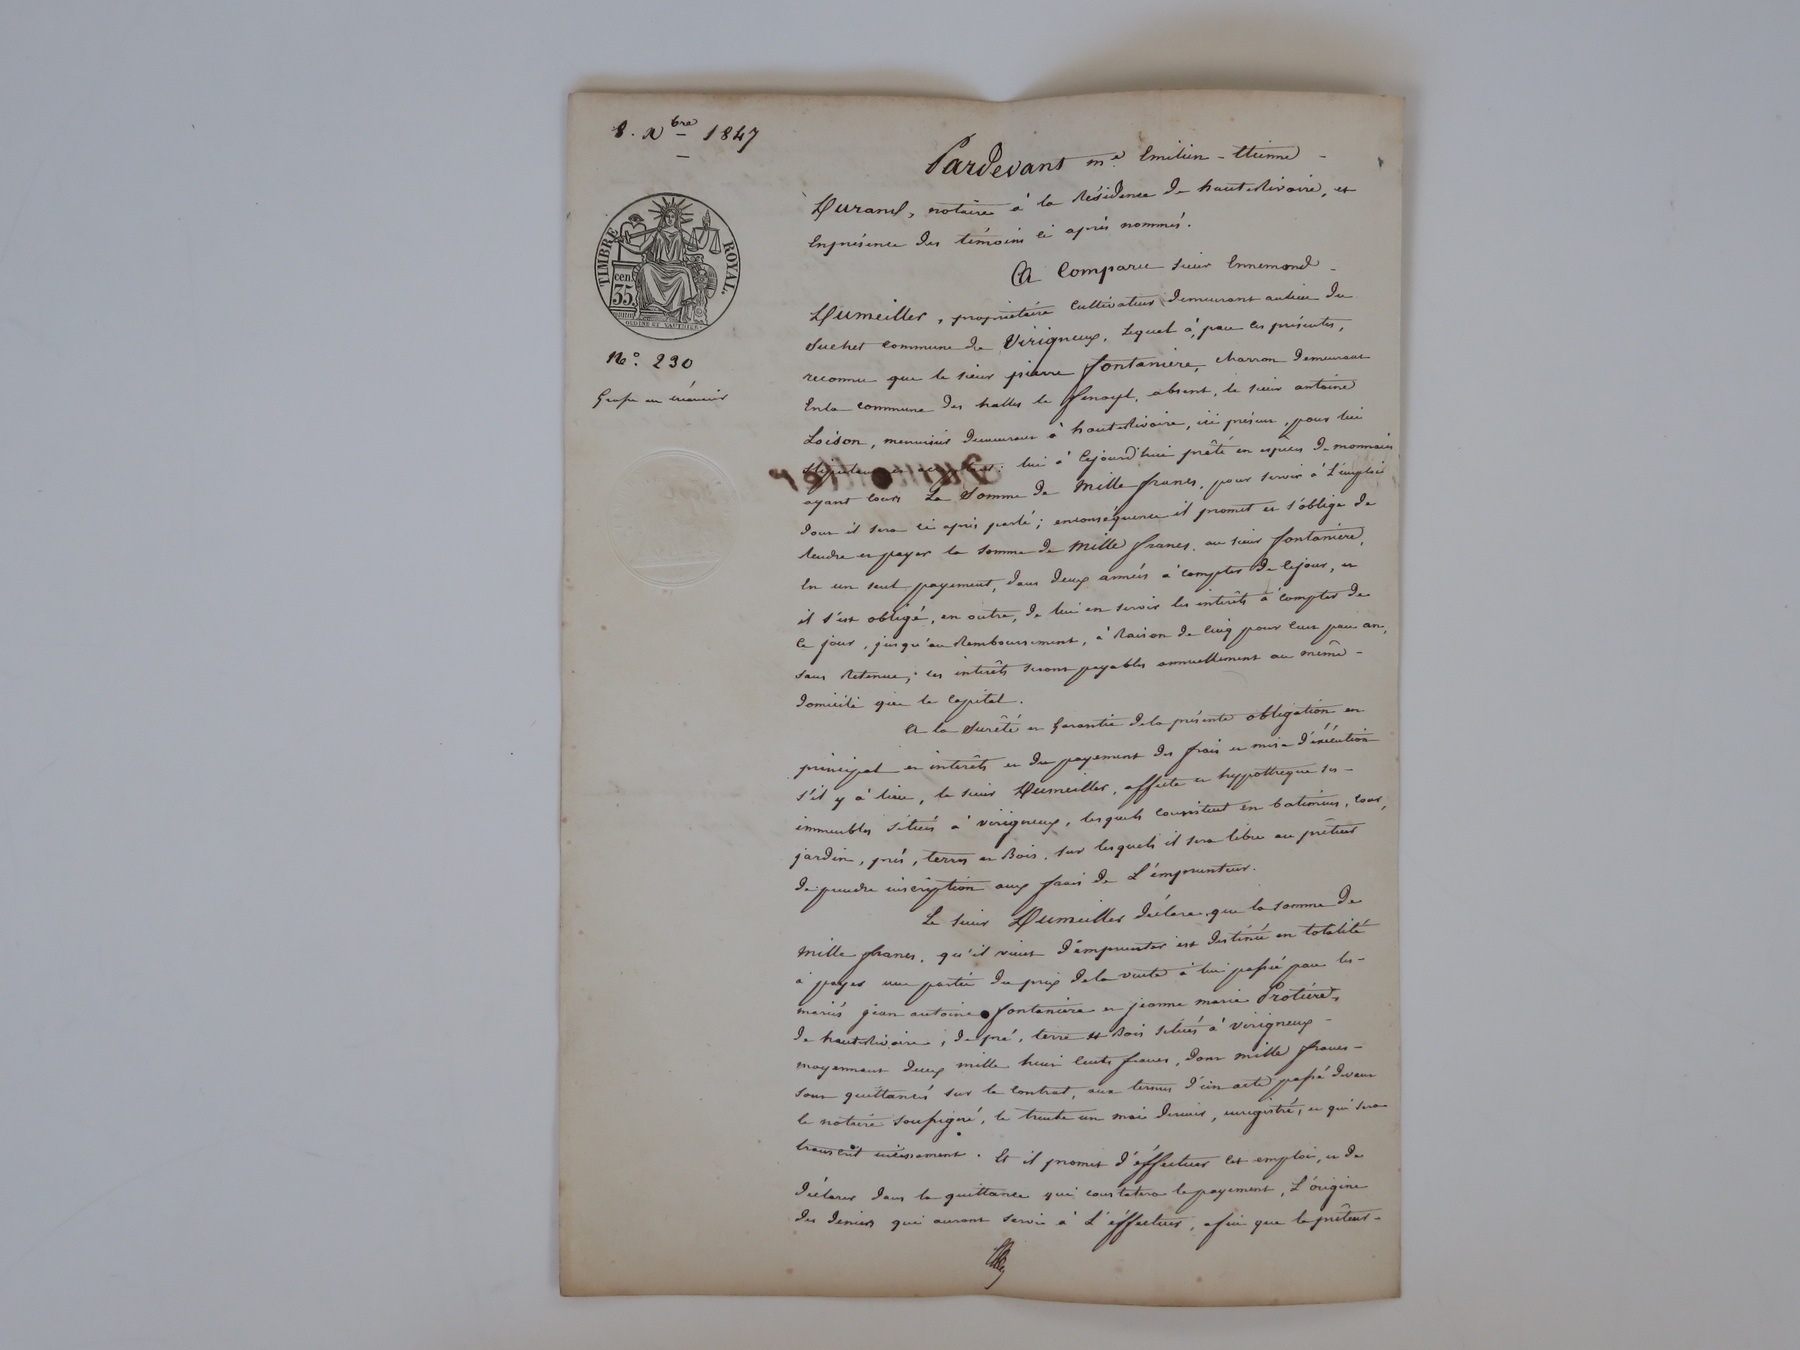 8. Xbre 1847
TIMBRE ROYAL.
cen.
35.
No. 230
Grosse en mémoire
Pardevant me. Emilien - Etienne -
Durand, notaire à la Résidence de haute Rivoire, et
Enprésence des témoins ci après nommés.
A Comparu sieur Ennemond -
Dumeiller, propriétaire Cultivateur demeurant aulieu du
Suchet commune de Virigneux. Lequel à, par ces présentes,
reconnu que le sieur pierre fontaniere, charron demeurant
Enla commune des halles le fenoyl, absent, le sieur antoine
Loison, menuisier demeurant à haute Rivoire, ici présent, pour lui
lui à Cejourd'hui prêté en espèces de monnaies
ayant cours La Somme de Mille francs, pour servir à L'emploi
dont il sera ci après parlé; enconséquence il promet et s'oblige de
Rendre et payer la somme de Mille francs, au sieur fontanière,
En un seul payement, dans deux années à compter de Cejour, et
il s'est obligé, en outre, de lui en servir les intérêts à compter de
Ce jour, jusqu'au Remboursement, à Raison de Cinq pour Cent par an,
sans Retenue; ces intérêts seront payables annuellement au même -
domicile que le Capital.
A la Sureté et Garantie dela présente obligation en
principal et intérêts et du payement des frais et mise d'éxécution
s'il y à lieu, le sieur Dumeiller, affecte et hypothèque ses -
immeubles situés à virigneux, lesquels consistent en batiments, Cour,
jardin, prés, terres et Bois, sur lesquels il sera libre au prêteur
de prendre inscription aux frais de L'émprunteur.
Le sieur Dumeiller déclare que la somme de
Mille francs, qu'il vient d'émprunter est destinée en totalité
à payer une partie du prix dela vente à lui passée par les -
mariés jean antoine fontaniere et jeanne marie Protière,
de haute Rivoire, de pré, terre et Bois situés à Virigneux -
moyennant deux mille huit Cents francs, dont Mille francs -
sont quittancés sur le Contrat, aux termes d'un acte passé devant
le notaire soussigné, le trente un mai dernier, enregistré, et qui sera
transcrit incessament. Et il promet d'éffectuer Cet emploi, et de
déclarer dans la quittance qui constatera le payement, L'origine
des deniers qui auront servi à L'éffectuer, afin que le prêteur -